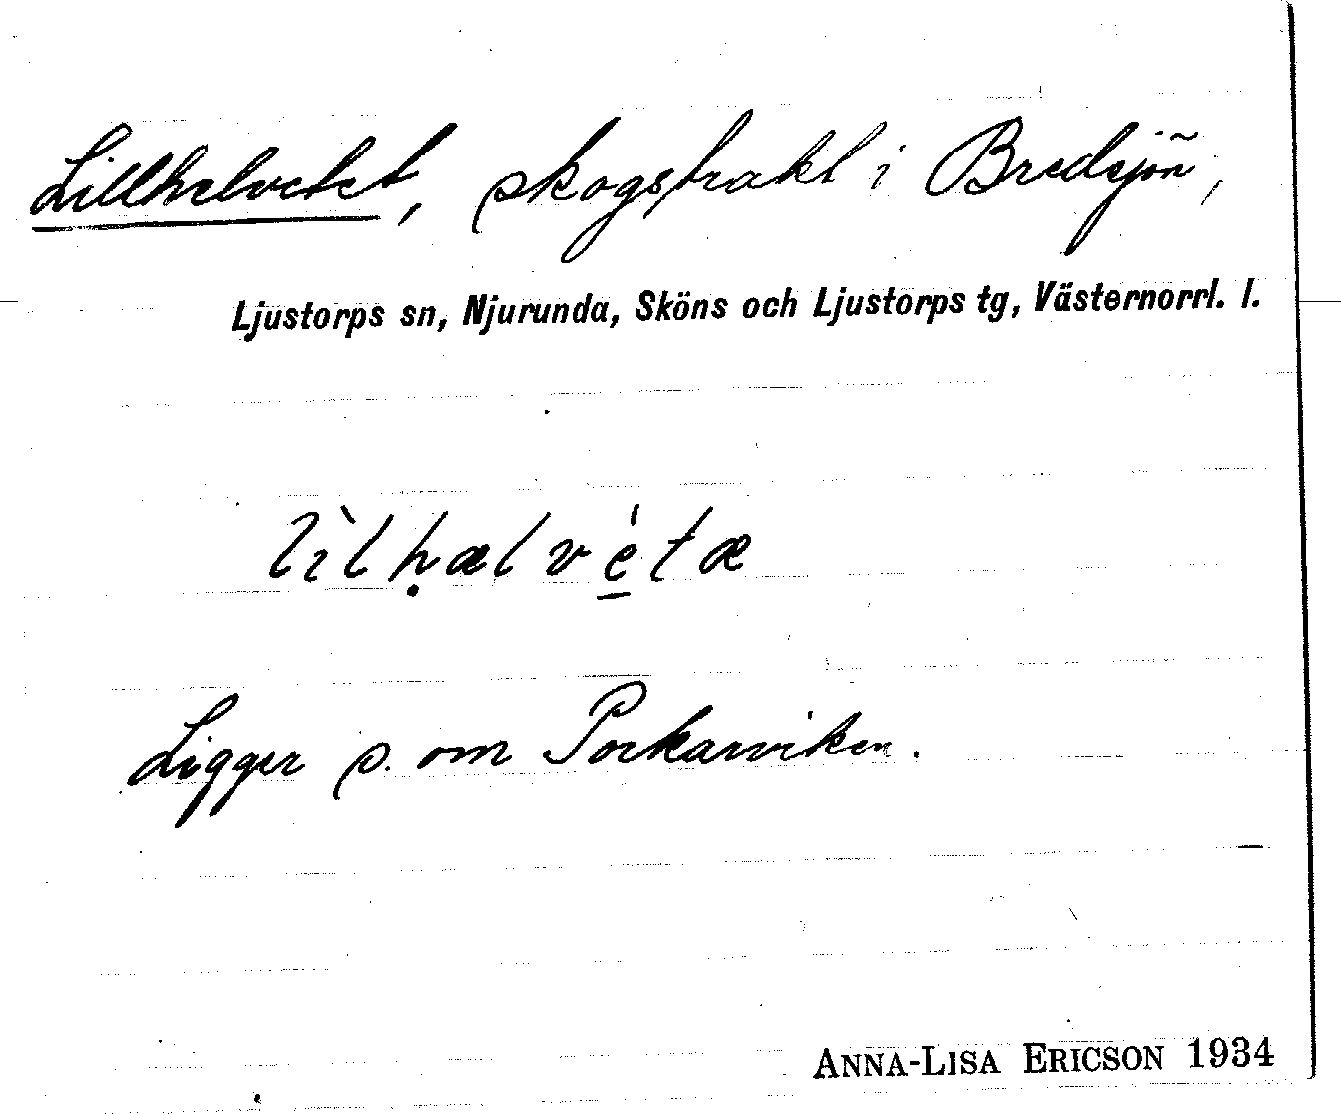 Lillhelvetet, skogstrakt i Bredsjön,
Ljustorps sn, Njurunda, Sköns och Ljustorps tg, Västernorrl. l.
lìlḥælvé̱tæ
Ligger s. om Porkarviken.
ANNA-LISA ERICSON 1934